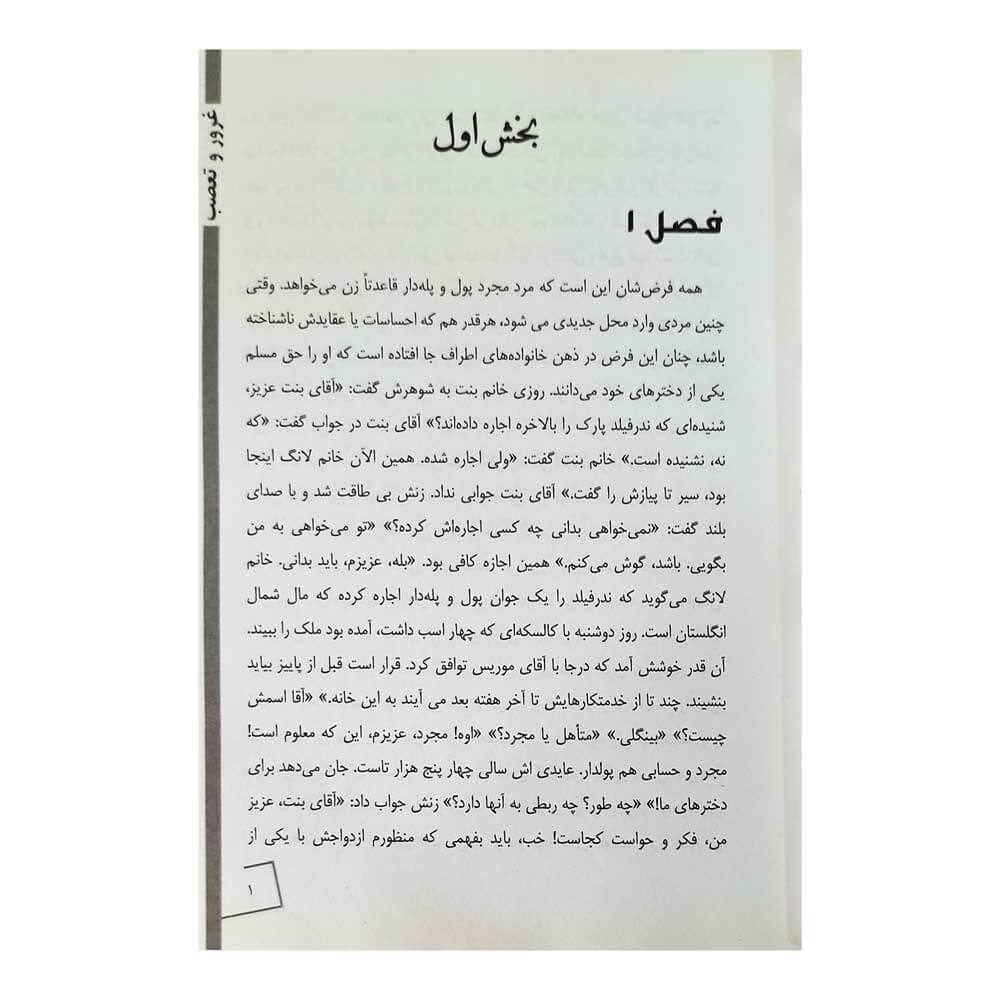 غرور و تعصب
بخش اول
فصل ۱
همه فرض‌شان این است که مرد مجرد پول و پله‌دار قاعدتاً زن می‌خواهد. وقتی
چنین مردی وارد محل جدیدی می شود، هرقدر هم که احساسات یا عقایدش ناشناخته
باشد، چنان این فرض در ذهن خانواده‌های اطراف جا افتاده است که او را حق مسلم
یکی از دخترهای خود می‌دانند. روزی خانم بنت به شوهرش گفت: «آقای بنت عزیز،
شنیده‌ای که ندرفیلد پارک را بالاخره اجاره داده‌اند؟» آقای بنت در جواب گفت: «که
نه، نشنیده است.» خانم بنت گفت: «ولی اجاره شده. همین الآن خانم لانگ اینجا
بود، سیر تا پیازش را گفت.» آقای بنت جوابی نداد. زنش بی طاقت شد و با صدای
بلند گفت: «نمی‌خواهی بدانی چه کسی اجاره‌اش کرده؟» «تو می‌خواهی به من
بگویی. باشد، گوش می‌کنم.» همین اجازه کافی بود. «بله، عزیزم، باید بدانی. خانم
لانگ می‌گوید که ندرفیلد را یک جوان پول و پله‌دار اجاره کرده که مال شمال
انگلستان است. روز دوشنبه با کالسکه‌ای که چهار اسب داشت، آمده بود ملک را ببیند.
آن قدر خوشش آمد که درجا با آقای موریس توافق کرد. قرار است قبل از پاییز بیاید
بنشیند. چند تا از خدمتکارهایش تا آخر هفته بعد می آیند به این خانه.» «آقا اسمش
چیست؟» «بینگلی.» «متأهل یا مجرد؟» «اوه! مجرد، عزیزم، این که معلوم است!
مجرد و حسابی هم پولدار. عایدی اش سالی چهار پنج هزار تاست. جان می‌دهد برای
دخترهای ما!» «چه طور؟ چه ربطی به آنها دارد؟» زنش جواب داد: «آقای بنت، عزیز
من، فکر و حواست کجاست! خب، باید بفهمی که منظورم ازدواجش با یکی از
۱